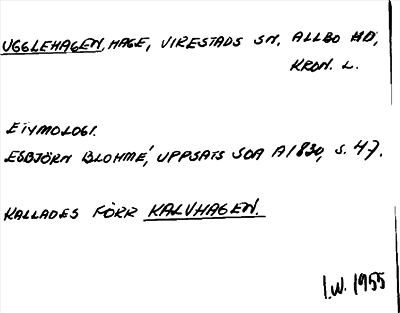 UGGLEHAGEN, HAGE, VIRESTADS SN, ALLBO HD,
KRON. L.
ETYMOLOGI.
ESBJÖRN BLOHMÉ, UPPSATS SOA A1830, S. 47.
KALLADES FÖRR KALVHAGEN.
I.W. 1955